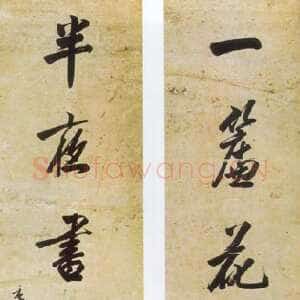 一簾花
半夜書
Shufawang.CN